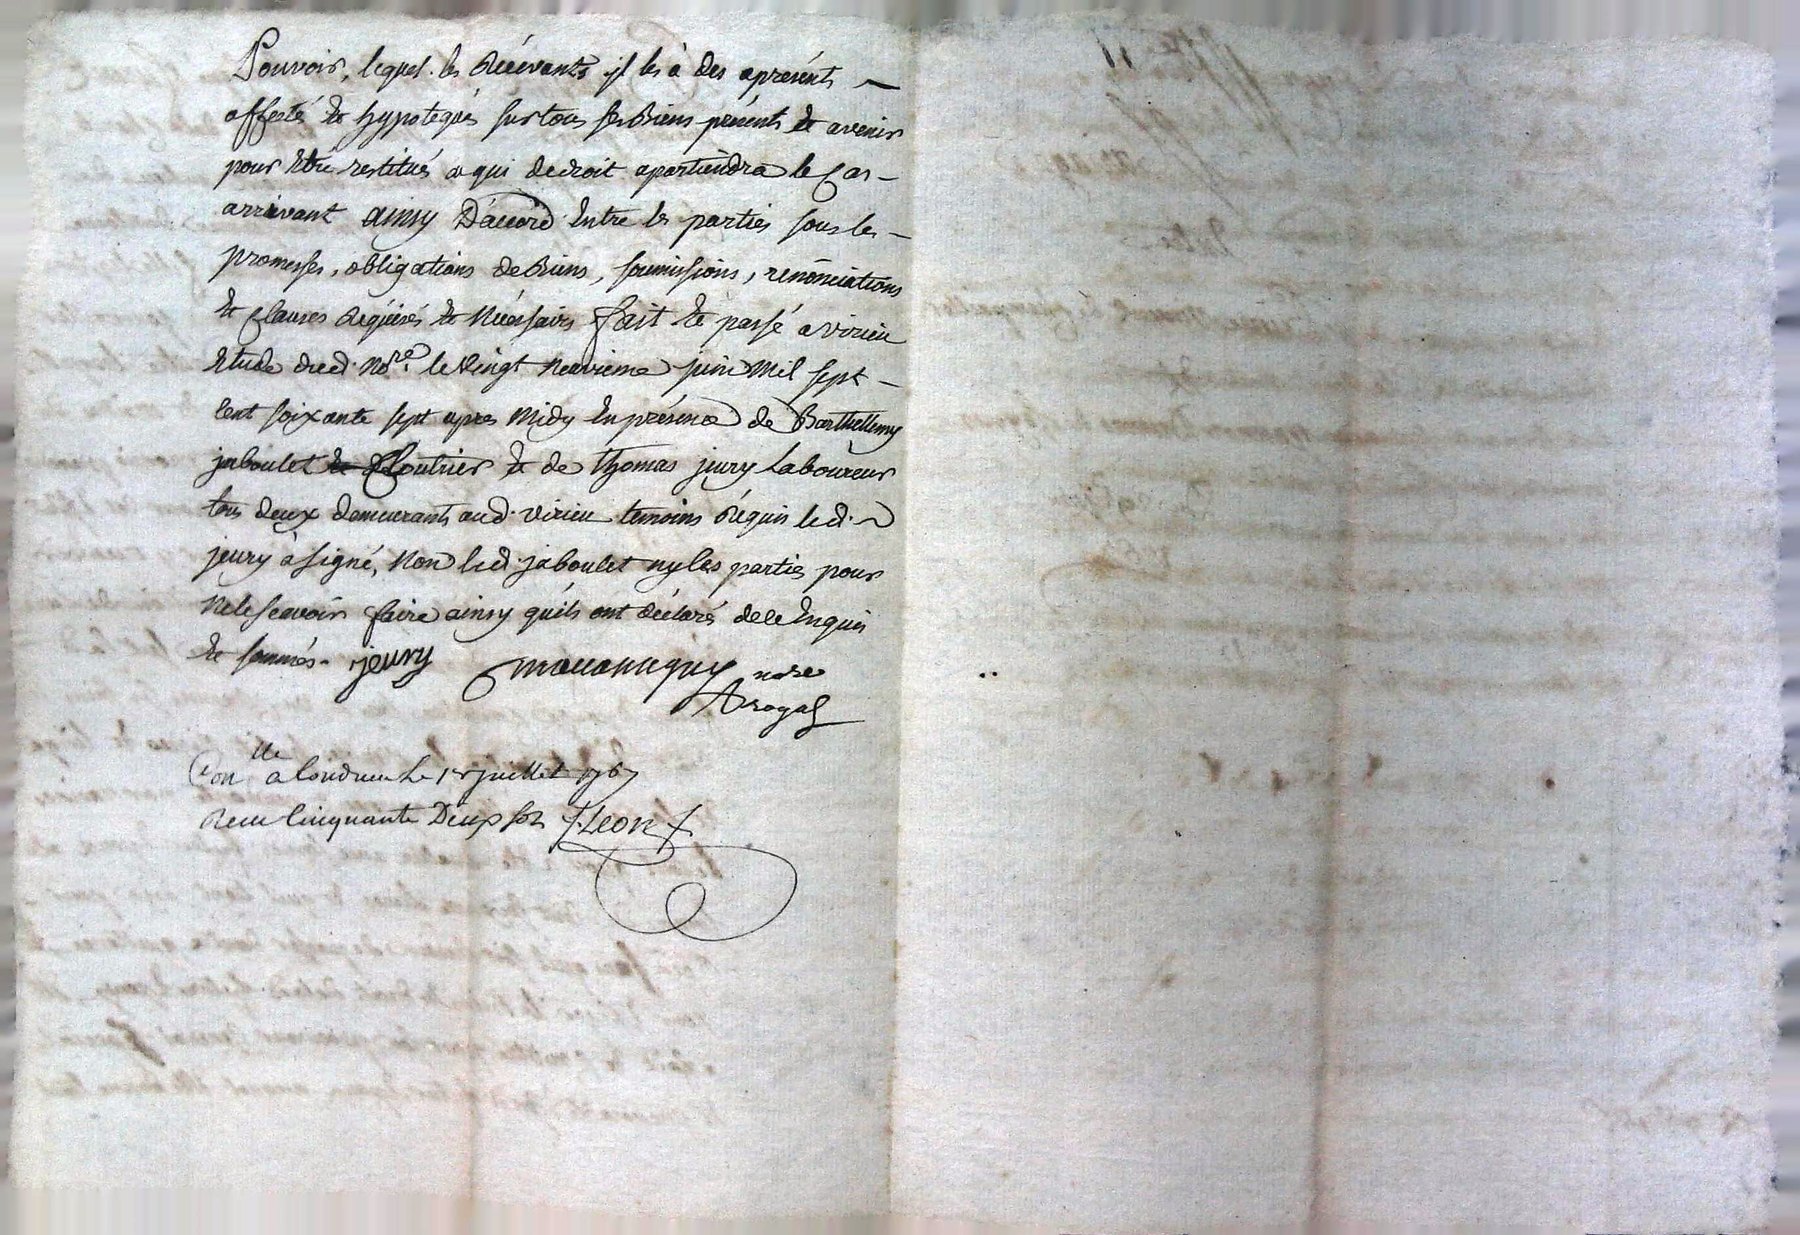 Pouvoir, lequel. les Recevants il les à des apresents
affecté et hypotequés sur tous ses Biens présents et avenir
pour etre restitués a qui de droit apartiendra le Cas
arrivant ainsy D'accord Entre les parties sous les
promesses, obligations de Biens, soumissions, renonciations
et Clauses Requises et Necessaires fait et passé a virieu
Etude dud. No.re le Vingt Neuvieme juin Mil sept
Cent soixante sept apres Midy En présence de Barthellemy
jaboulet Cloutrier et de thomas jeury Laboureur
tous deux demeurants aud. virieu temoins Requis led.
jeury à signé, Non led. jaboulet ny les parties pour
Ne le scavoir faire ainsy qu'ils ont déclaré de ce Enquis
et sommés. jeury nore
royal
Con.lle a Condrieu Le 1r juillet 1767
Recu Cinquante Deux sols Leon